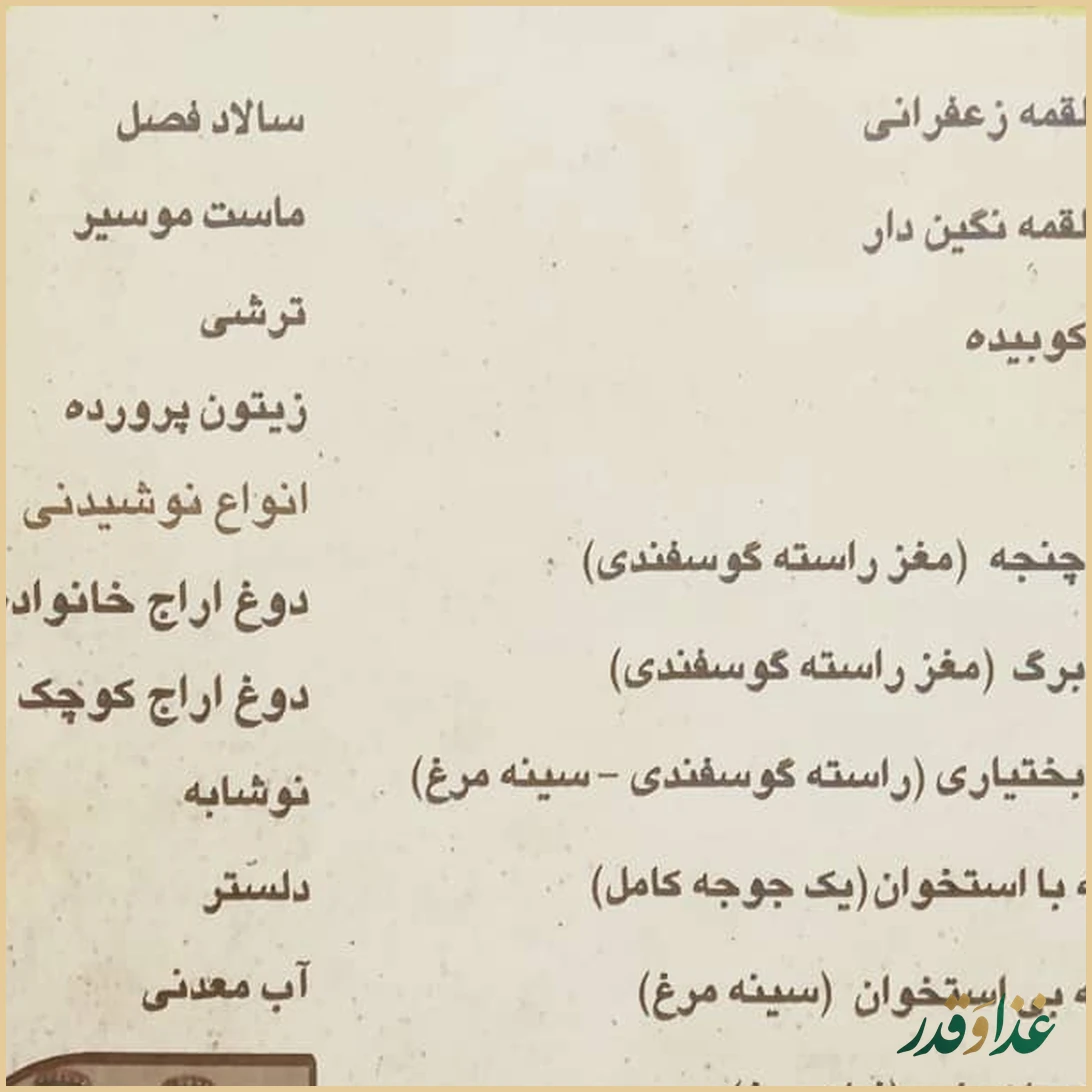 لقمه زعفرانی
لقمه نگین دار
کوبیده
چنجه (مغز راسته گوسفندی)
برگ (مغز راسته گوسفندی)
بختیاری (راسته گوسفندی - سینه مرغ)
با استخوان (یک جوجه کامل)
بی استخوان (سینه مرغ)
سالاد فصل
ماست موسیر
ترشی
زیتون پرورده
انواع نوشیدنی
دوغ اراج
دوغ اراج کوچک
نوشابه
دلستر
آب معدنی
غذا و قدر